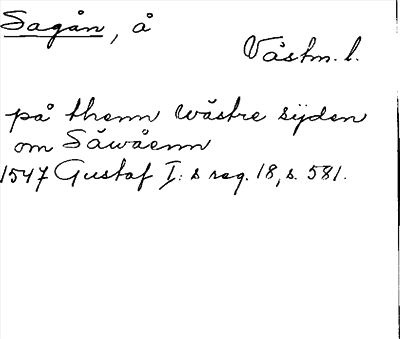 Sagån, å
Västm. l.
på thenn wästre sijden
om Såwåenn
1547 Gustaf I:s reg. 18, s. 581.